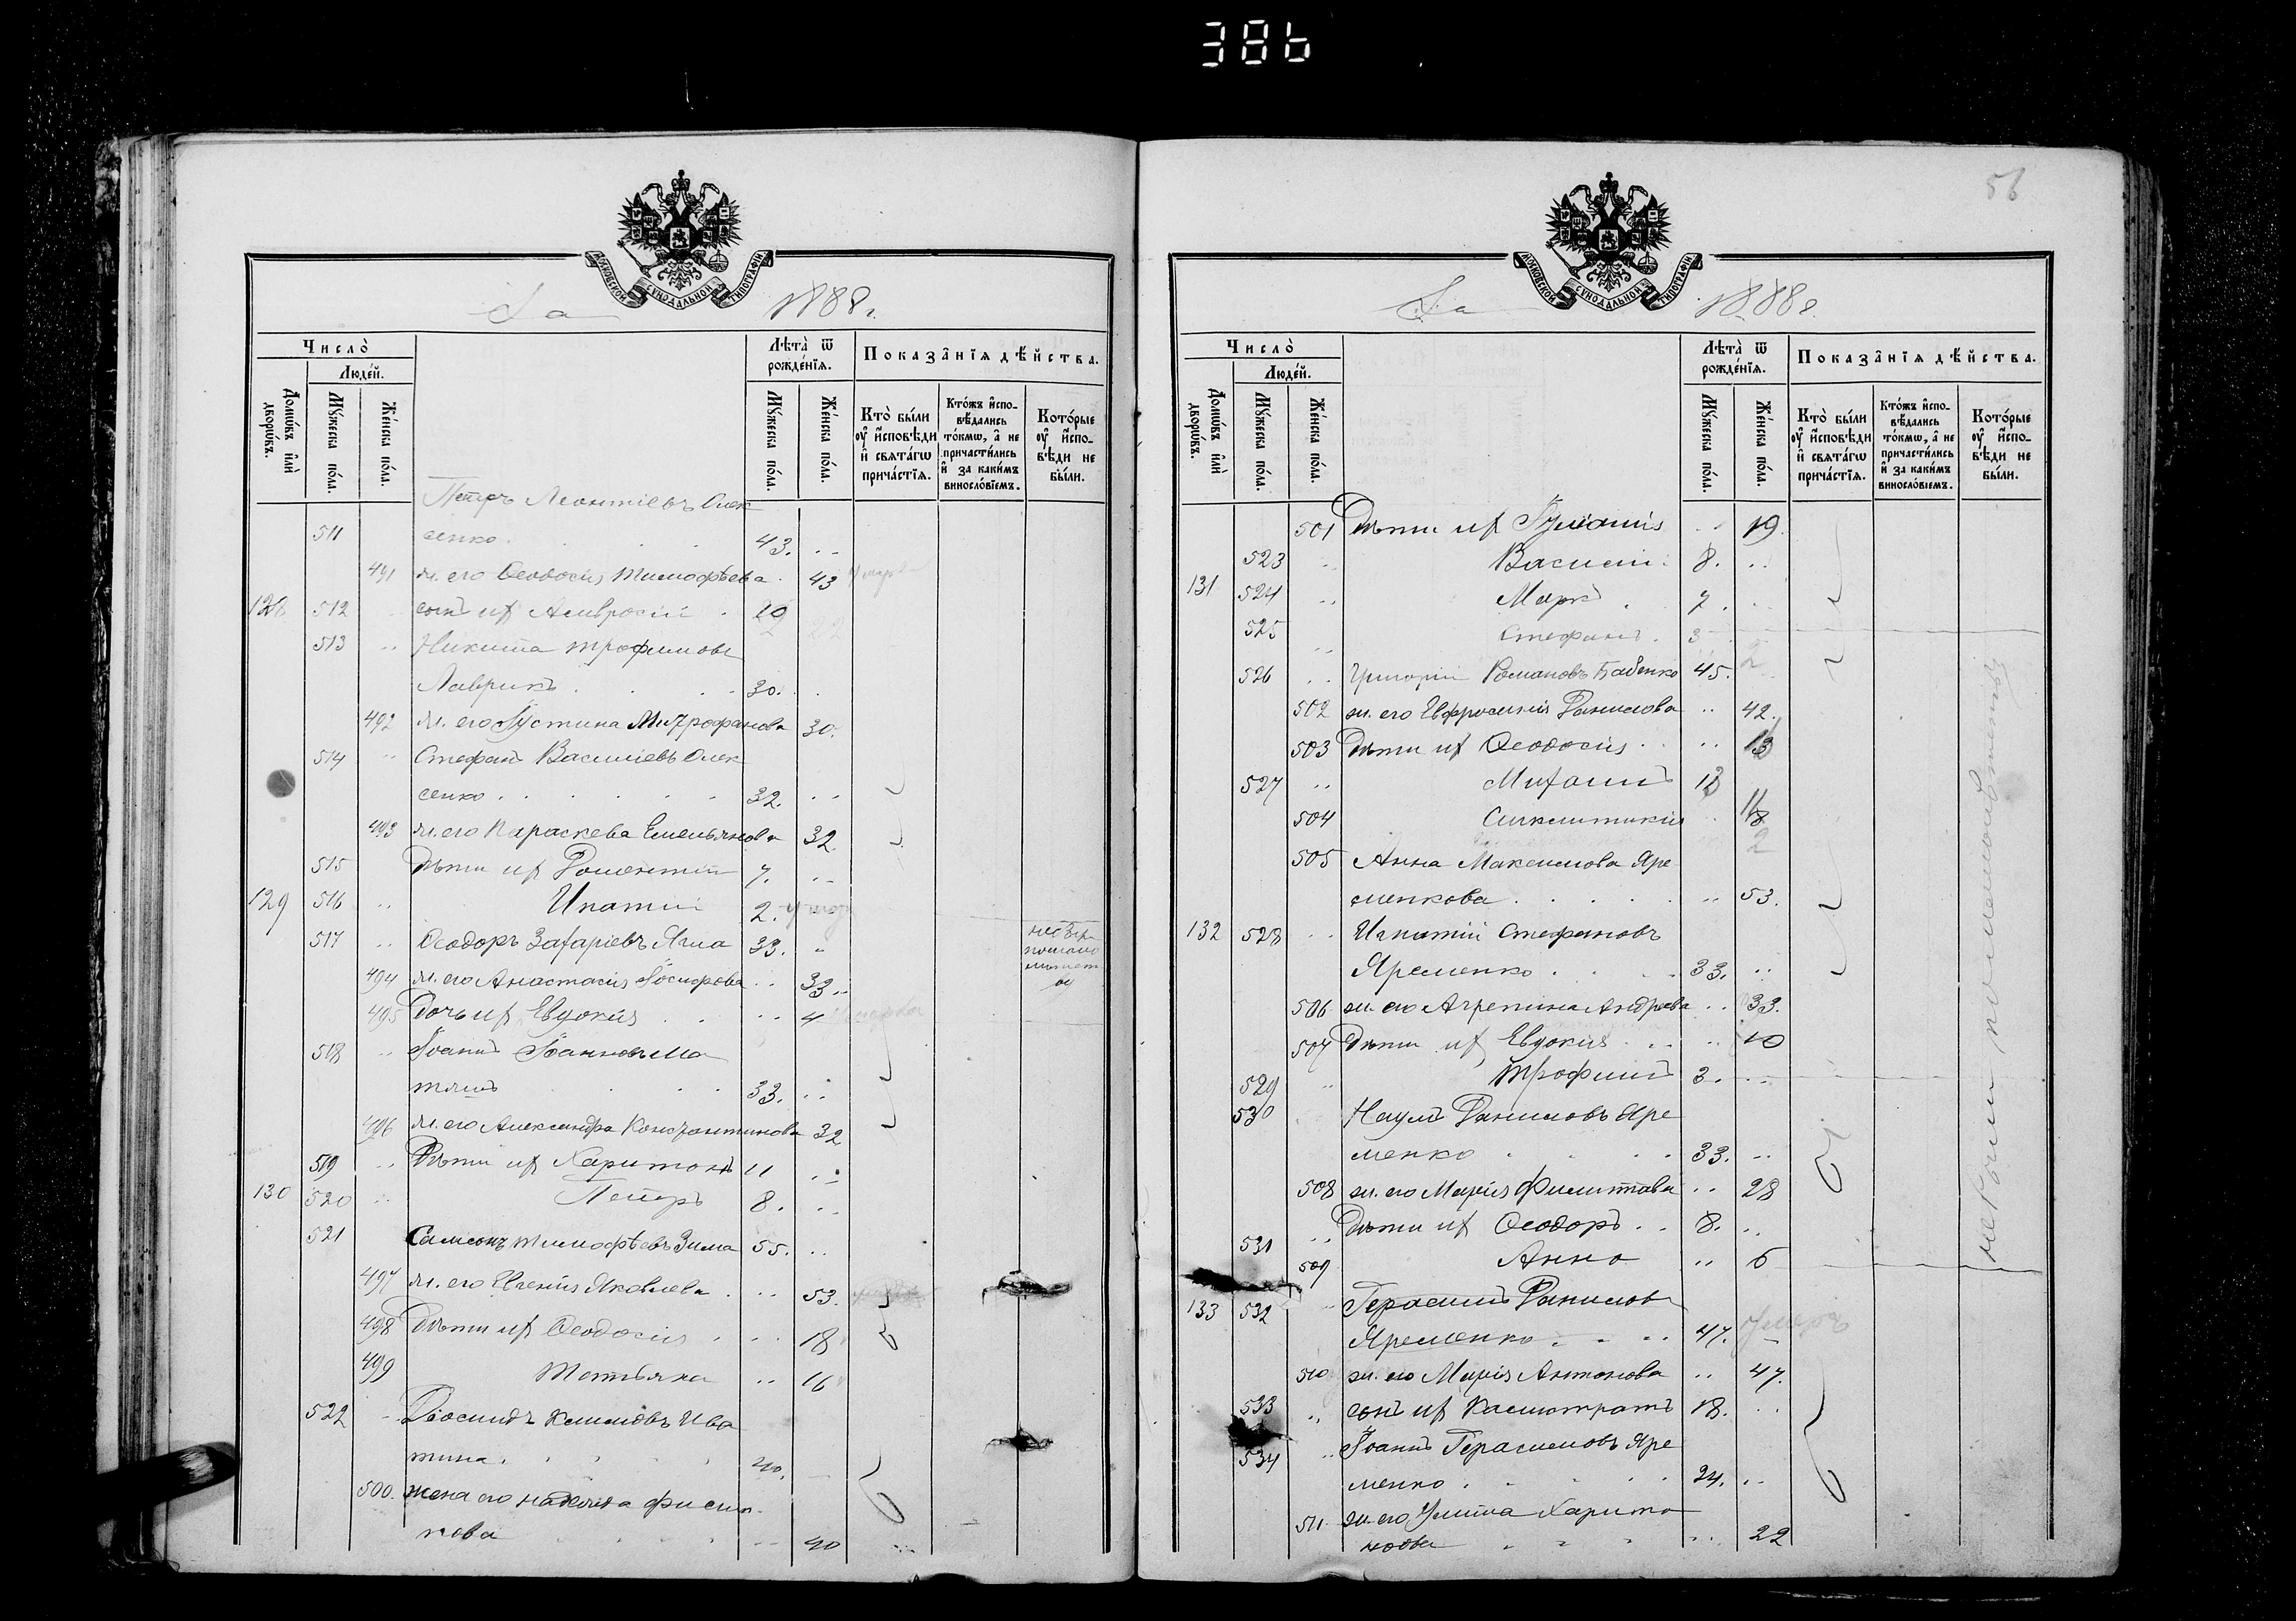 386
МОСКОВСКОЙ СѴНОДАЛЬНОЙ ТИПОГРАФІИ
За 1888 г.
Число̀
Людей.
Домѡвъ и҆лѝ дворѡвъ.
Мꙋжеска пола.
Женска пола.
Лѣта̀ ѿ рожденїѧ.
Мꙋжеска пола.
Женска пола.
Показанїѧ дѣйства.
Кто̀ были ᲂу҆ и҆сповѣди и҆ свѧтагѡ причастїѧ.
Ктожъ и҆сповѣдались токмѡ, а҆ не причастились и҆ за какимъ винословїемъ.
Которые ᲂу҆ и҆сповѣди не были.
Петръ Леонтіевъ Олек
511 сенко 43.
491 ж. его Ѳеодосія Тимофѣева 43
128 512 сынъ их Амвросій 19
513 Никита Трофимовъ
Лаврикъ 30.
492 ж. его Іустина Митрофанова 30.
514 Стефанъ Василіевъ Олек
сенко 32.
493 ж. его Параскева Емельянова 32
515 Дѣти их Доментій 7.
129 516 Ипатій 2.
517 Ѳеодоръ Захаріевъ Ягла 33.
494 ж. его Анастасія Іосифова 33
495 Дочь их Евдокія 4
518 Іоаннъ Іоанновъ Ма
тяшъ 33.
496 ж. его Александра Константинова 32
519 Дѣти их Харитонъ 11
130 520 Петръ 8.
521 Самсонъ Тимофѣевъ Зима 55.
497 ж. его Евгенія Яковлева 53.
498 Дѣти их Ѳеодосія 18
499 Татьяна 16
522 Діомидъ Климовъ Ива
тина 40.
500. жена его Надежда
кова 40
56
МОСКОВСКОЙ СѴНОДАЛЬНОЙ ТИПОГРАФІИ
За 1888 г.
Число̀
Людей.
Домѡвъ и҆лѝ дворѡвъ.
Мꙋжеска пола.
Женска пола.
Лѣта̀ ѿ рожденїѧ.
Мꙋжеска пола.
Женска пола.
Показанїѧ дѣйства.
Кто̀ были ᲂу҆ и҆сповѣди и҆ свѧтагѡ причастїѧ.
Ктожъ и҆сповѣдались токмѡ, а҆ не причастились и҆ за какимъ винословїемъ.
Которые ᲂу҆ и҆сповѣди не были.
501 Дѣти их Іуліанія 19.
523 Василій 8.
131 524 Маркъ 7.
525 Стефанъ 3
526 Григорій Романовъ Бабенко 45.
502 ж. его Евфросинія Данилова 42.
503 Дѣти их Ѳеодосія 13
527 Михаилъ 12
504 Синклитикія
505 Анна Максимова Яре
менкова 53.
132 528 Игнатій Стефановъ
Яременко 33.
506 ж. его Агрепина Андреева 33.
507 Дѣти их Евдокія 10
529 Трофимъ 3.
530 Наумъ Даниловъ Яре
менко 33.
508 ж. его Марія Филиппова 28
531 Дѣти их Ѳеодоръ 8.
509 Анна 6
133 532 Герасимъ Даниловъ
Яременко 47. Умеръ
510 ж. его Марія Антонова 47.
533 сынъ их Калистратъ 18.
534 Іоаннъ Герасимовъ Яре
менко 24.
511 ж. его Улита Харито
нова 22